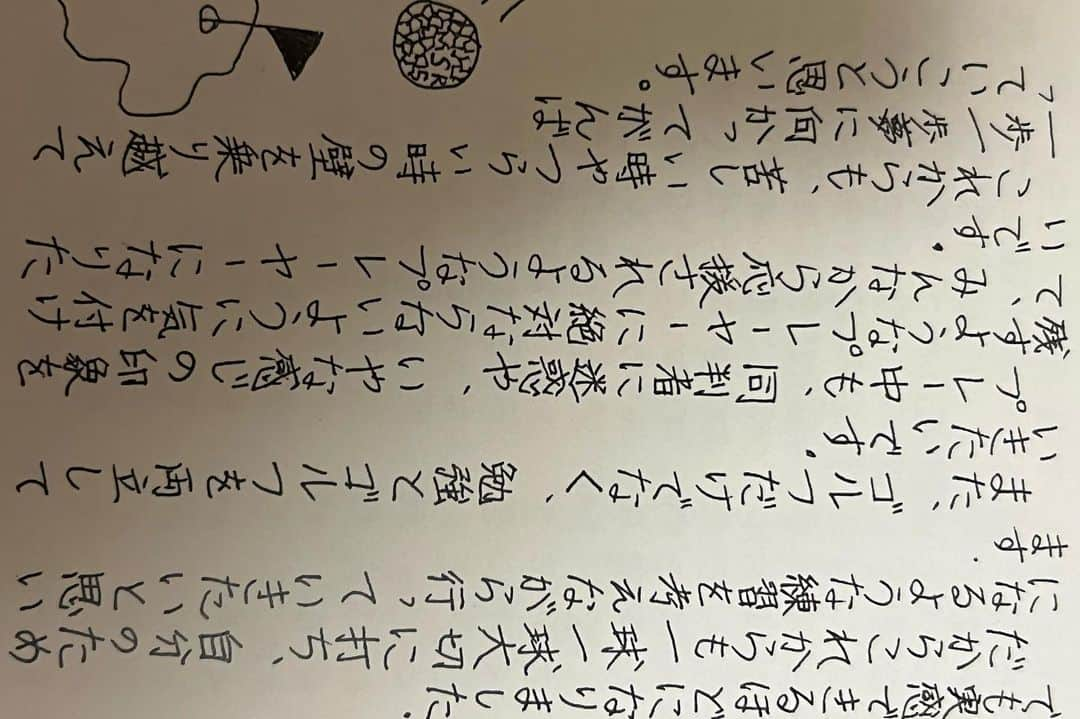 でも実感できるほどになりました。
だからこれからも一球一球大切に打ち、自分のため
になるような練習を考えながら行っていきたいと思い
ます。
また、ゴルフだけでなく、勉強とゴルフを両立して
いきたいです。
プレー中も、同判者に迷惑や、いやな感じの印象を
残すようなプレーヤーに絶対ならないように気を付け
て、みんなから応援されるようなプレーヤーになりた
いです。
これからも、苦しい時やつらい時の壁を乗り越えて
一歩一歩夢に向かってがんば
っていこうと思います。